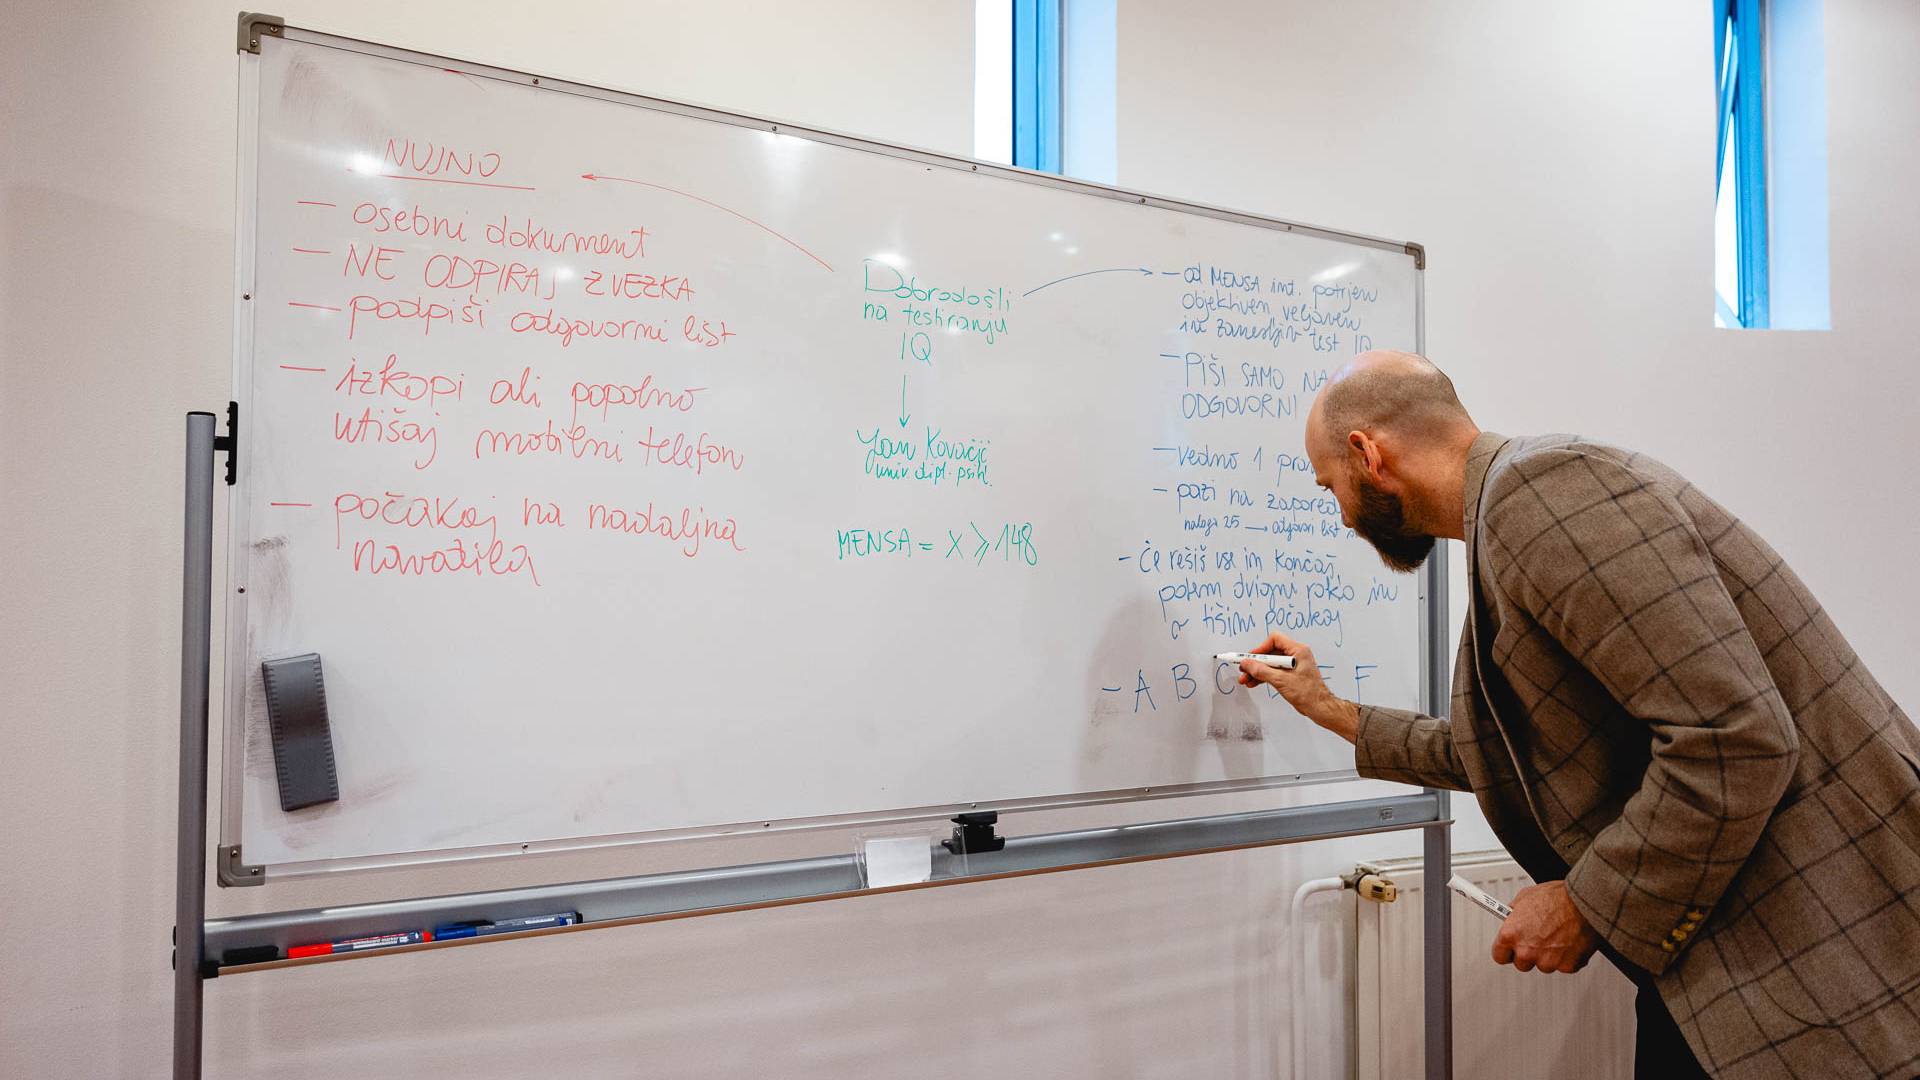 NUJNO
— osebni dokument
— NE ODPIRAJ ZVEZKA
— podpiši odgovorni list
— izklopi ali popolno
utišaj mobilni telefon
— počakaj na nadaljna
navodila
Dobrodošli
na testiranju
IQ
Jan Kovačič
univ. dipl. psih.
MENSA = X ≥ 148
— od MENSA int. potrjen
objektiven veljaven
in zanesljiv test IQ
— PIŠI SAMO NA
ODGOVORNI
— vedno 1
— pazi na
naloga 25 → odgovori list
— če rešiš vse in končaš,
potem dvigni roko in
v tišini počakaj
— A B C E F